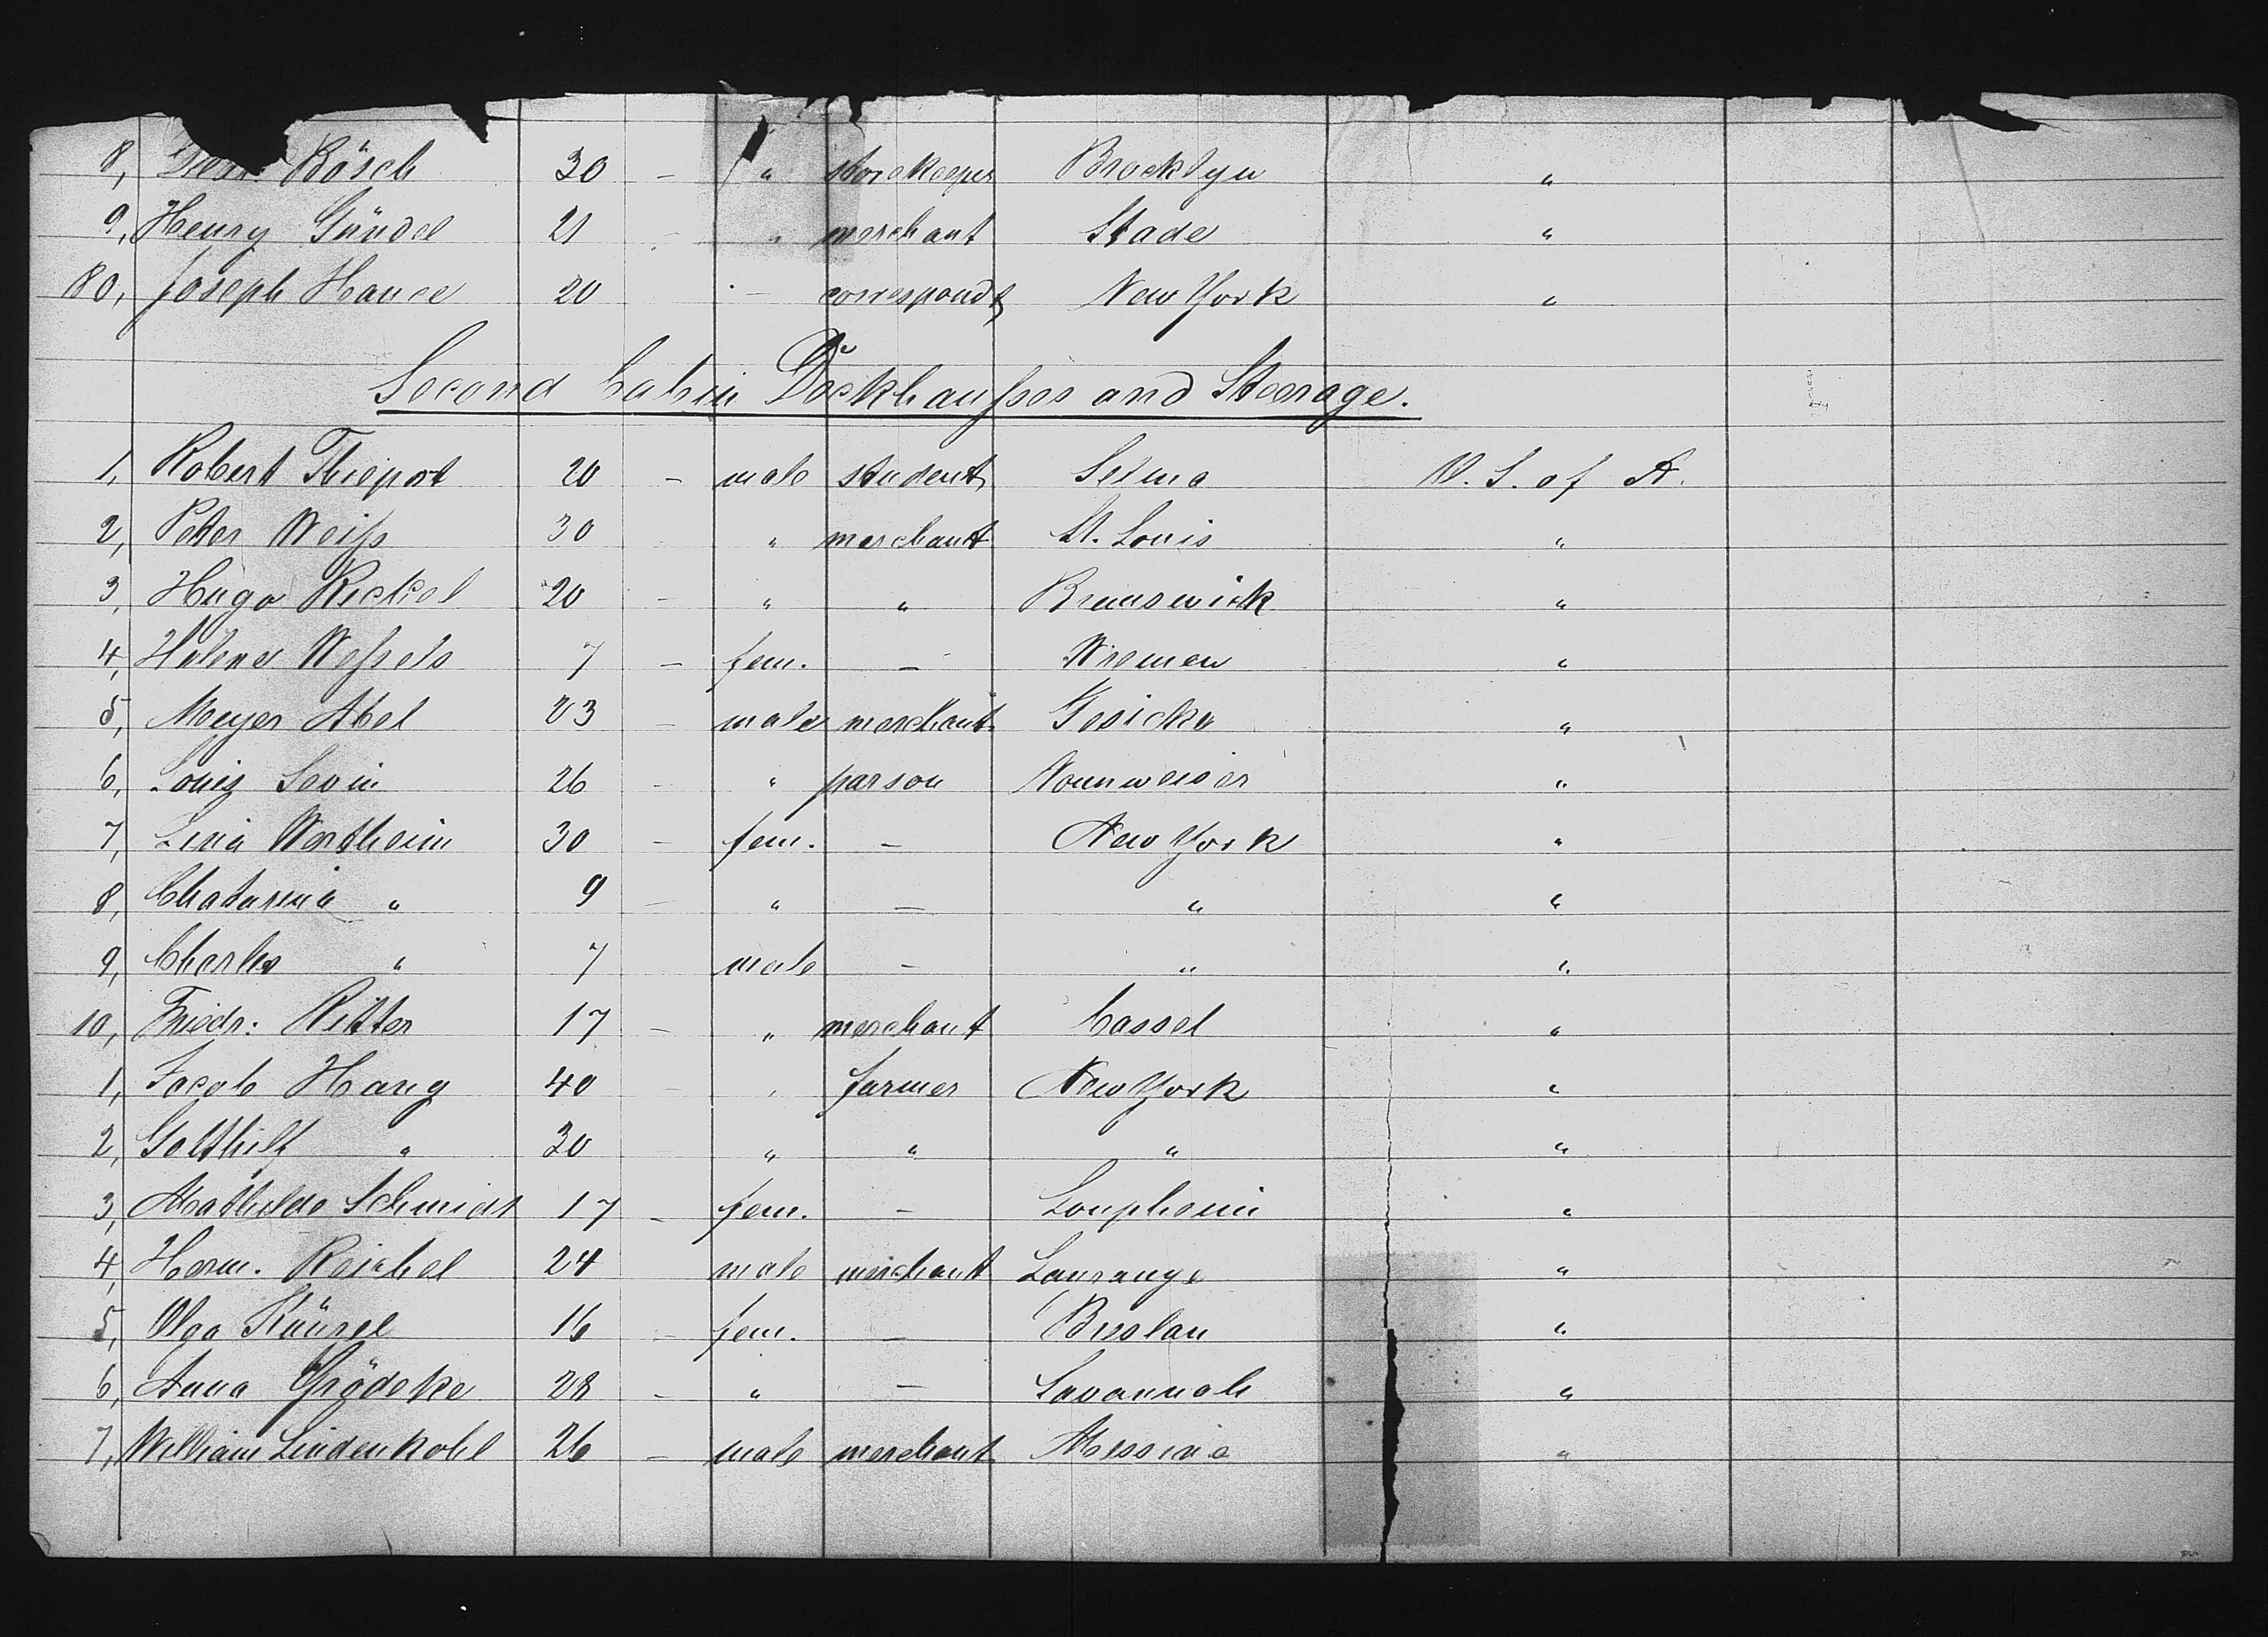 8, Bösch 30 - " storekeeper Brooklyn "
9, Henry Gündel 21 - " merchant Stade "
80, Joseph Hance 20 - correspondt New York "
Second Cabin Deckhausses and Steerage.
1, Robert Thiepot 20 - male student Selma U. S. of A.
2, Peter Weiss 30 " merchant St. Louis "
3, Hugo Rickel 20 - " " Brunswick "
4, Helene Wessels 7 - fem. - Bremen "
5, Meyer Abel 23 - male merchant Gesicke "
6, Louis Levin 26 - " parson Nounweiser "
7, Lina Wertheim 30 - fem. - New York "
8, Chatarina " 9 - " - " "
9, Charles " 7 male - " "
10, Friedr: Ritter 17 - " merchant Cassel "
1, Jacob Haug 40 - " farmer New York "
2, Gotthilf " 30 " " " "
3, Mathilde Schmidt 17 - fem. - Loupheim "
4, Herm. Reichel 24 male merchant Laurange "
5, Olga Künzel 16 - fem. - Breslau "
6, Anna Grödeke 28 - " - Savannah "
7, William Lindenkohl 26 - male merchant Messina "